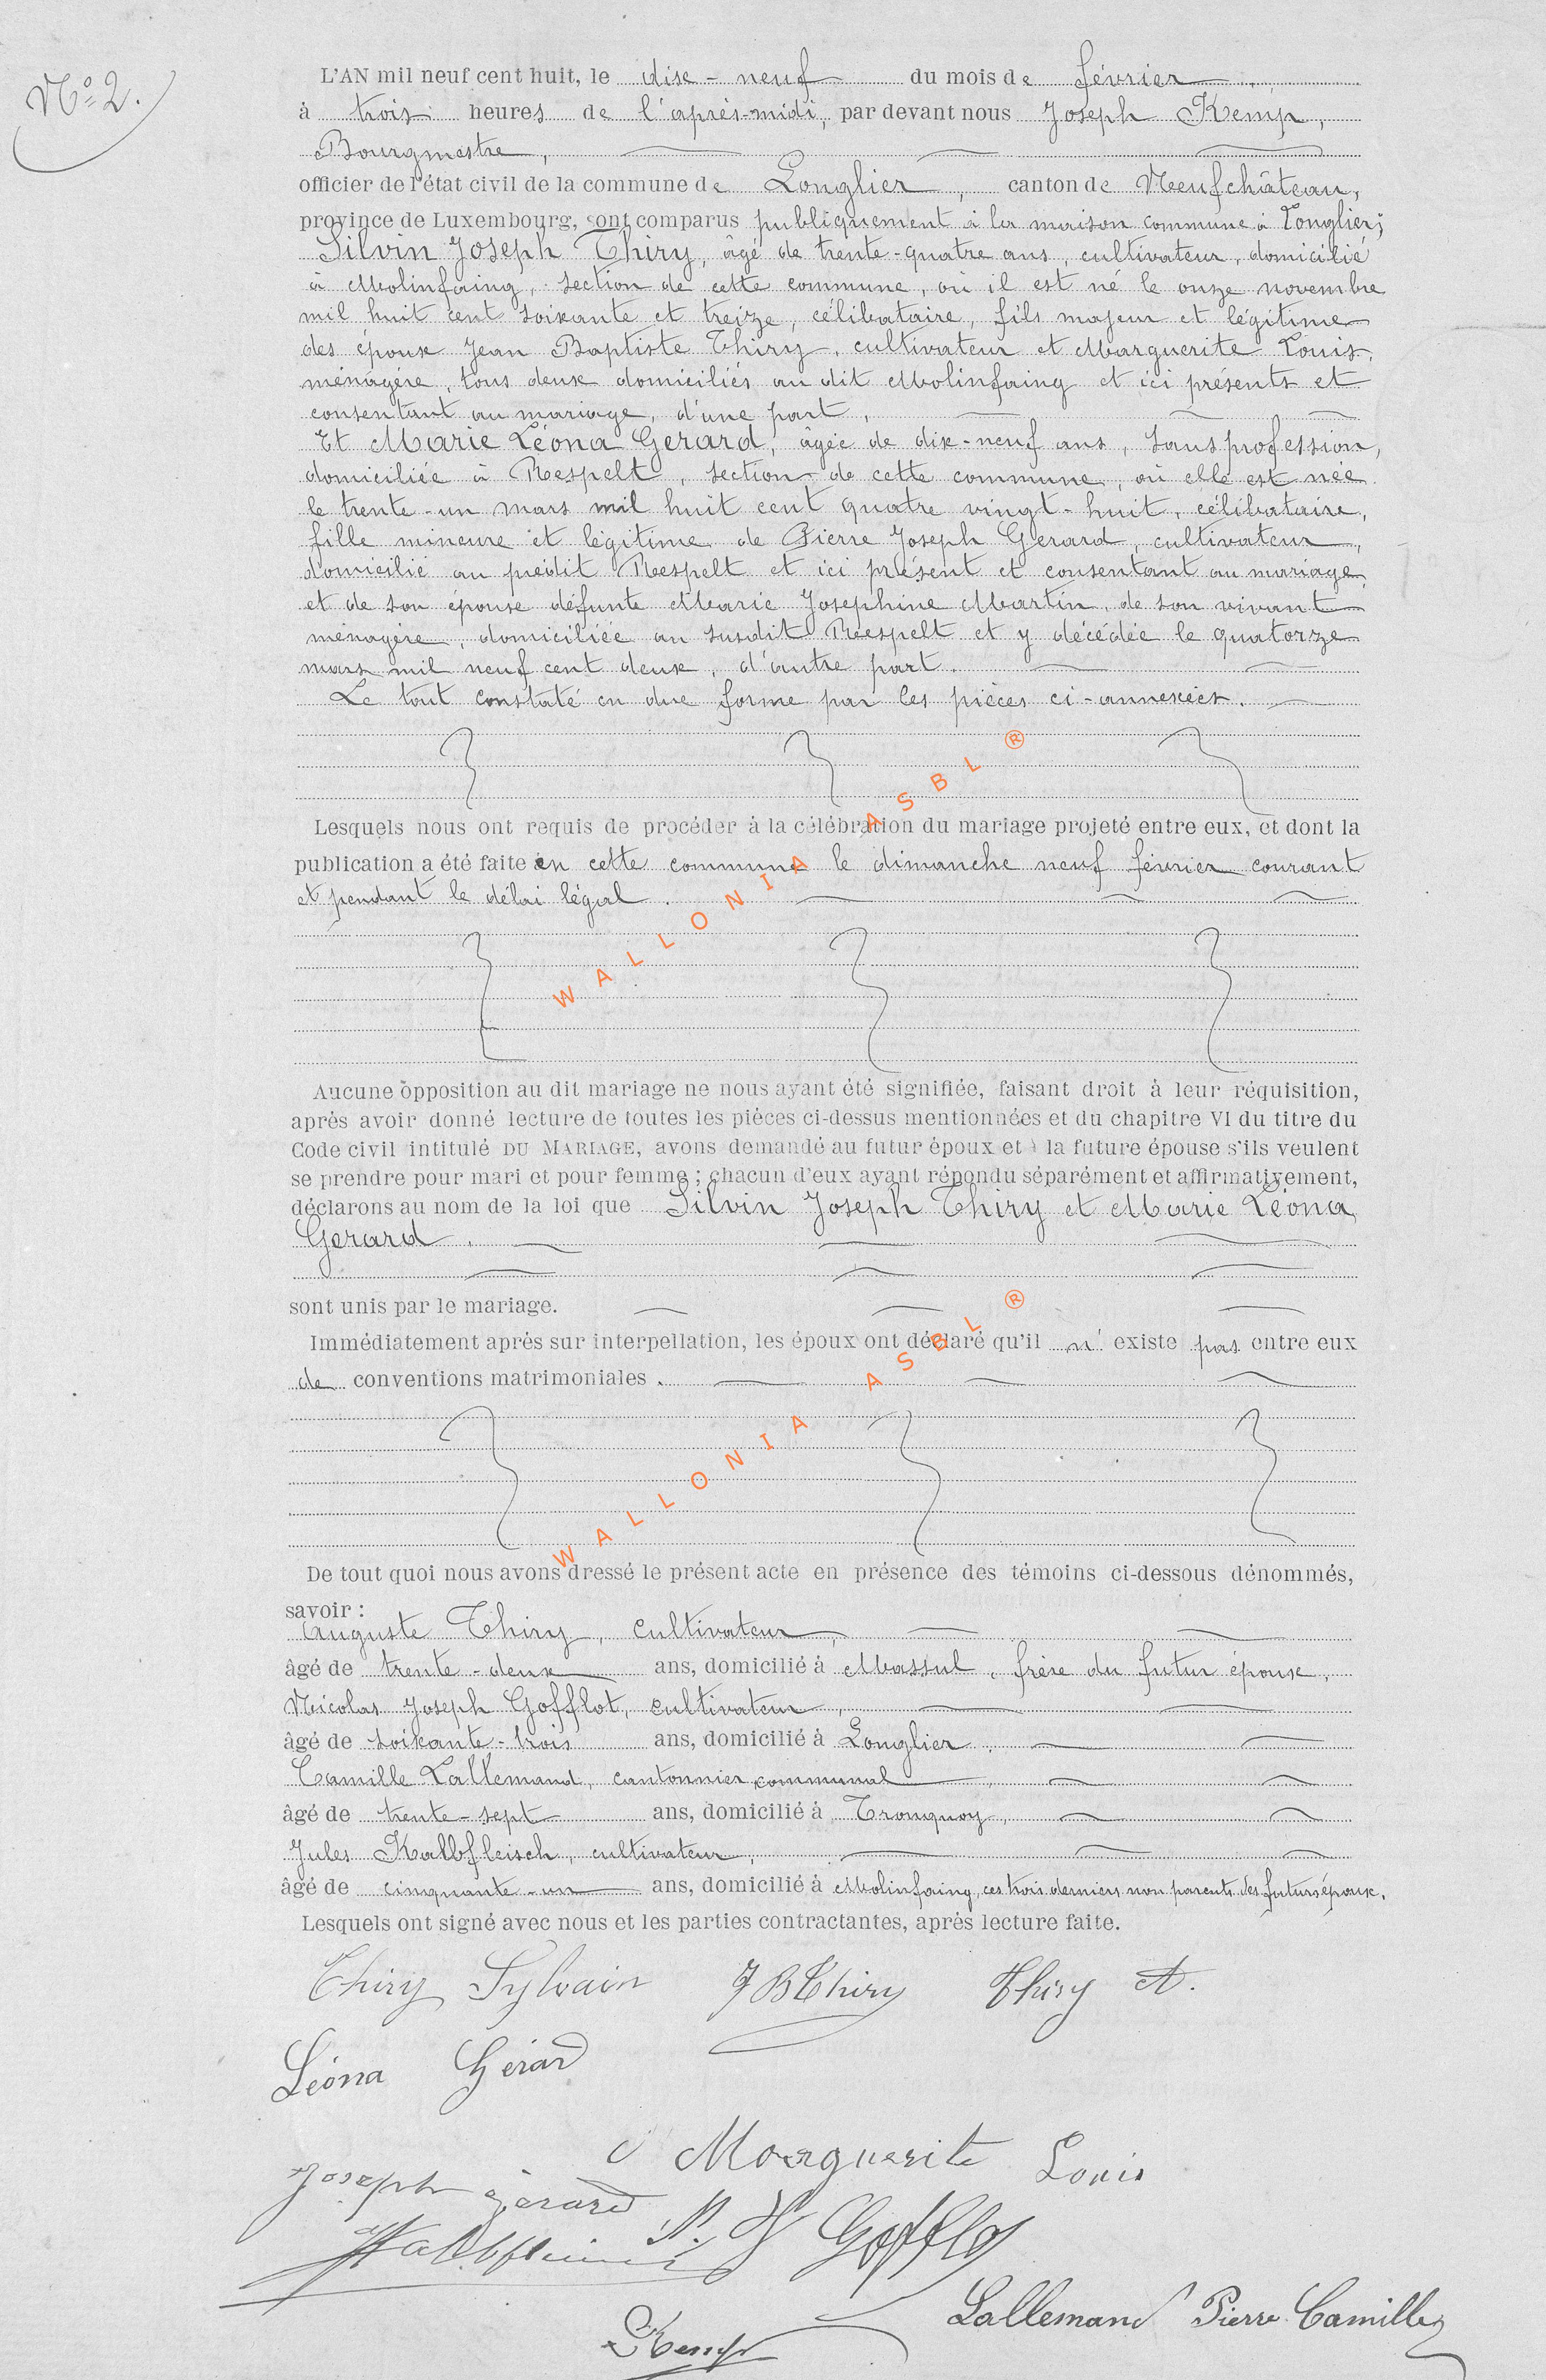 N° 2.
L'AN mil neuf cent huit, le dix-neuf du mois de février
à trois heures de l'après-midi, par devant nous Joseph Kemp,
Bourgmestre,
officier de l'état civil de la commune de Longlier, canton de Neufchâteau,
province de Luxembourg, sont comparus publiquement à la maison commune à Longlier;
Silvin Joseph Thiry, âgé de trente-quatre ans, cultivateur, domicilié
à Molinfaing, section de cette commune, où il est né le onze novembre
mil huit cent soixante et treize, célibataire, fils majeur et légitime
des époux Jean Baptiste Thiry, cultivateur et Marguerite Louis,
ménagère, tous deux domiciliés au dit Molinfaing et ici présents et
consentant au mariage, d'une part,
Et Marie Léona Gerard, âgée de dix-neuf ans, sans profession,
domiciliée à Respelt, section de cette commune, où elle est née
le trente-un mars mil huit cent quatre vingt-huit, célibataire,
fille mineure et légitime de Pierre Joseph Gerard, cultivateur,
domicilié au prédit Respelt et ici présent et consentant au mariage,
et de son épouse défunte Marie Josephine Martin, de son vivant
ménagère, domiciliée au susdit Respelt et y décédée le quatorze
mars mil neuf cent deux, d'autre part.
Le tout constaté en due forme par les pièces ci-annexées.
Lesquels nous ont requis de procéder à la célébration du mariage projeté entre eux, et dont la
publication a été faite en cette commune le dimanche neuf février courant
et pendant le délai légal.
WALLONIA ASBL ®
Aucune opposition au dit mariage ne nous ayant été signifiée, faisant droit à leur réquisition,
après avoir donné lecture de toutes les pièces ci-dessus mentionnées et du chapitre VI du titre du
Code civil intitulé DU MARIAGE, avons demandé au futur époux et à la future épouse s'ils veulent
se prendre pour mari et pour femme ; chacun d'eux ayant répondu séparément et affirmativement,
déclarons au nom de la loi que Silvin Joseph Thiry et Marie Léona
Gerard.
sont unis par le mariage.
Immédiatement après sur interpellation, les époux ont déclaré qu'il n'existe pas entre eux
de conventions matrimoniales.
WALLONIA ASBL ®
De tout quoi nous avons dressé le présent acte en présence des témoins ci-dessous dénommés,
savoir :
Auguste Thiry, cultivateur,
âgé de trente-deux ans, domicilié à Massul, frère du futur époux,
Nicolas Joseph Gofflot, cultivateur,
âgé de soixante-trois ans, domicilié à Longlier,
Camille Lallemand, cantonnier communal,
âgé de trente-sept ans, domicilié à Tronquoy,
Jules Kalbfleisch, cultivateur,
âgé de cinquante-un ans, domicilié à Molinfaing, ces trois derniers non parents des futurs époux.
Lesquels ont signé avec nous et les parties contractantes, après lecture faite.
Thiry Sylvain J B Thiry Thiry A.
Léona Gérard
Marguerite Louis
Joseph gérard
N. J. Gofflot
Lallemand Pierre Camille
Kemp